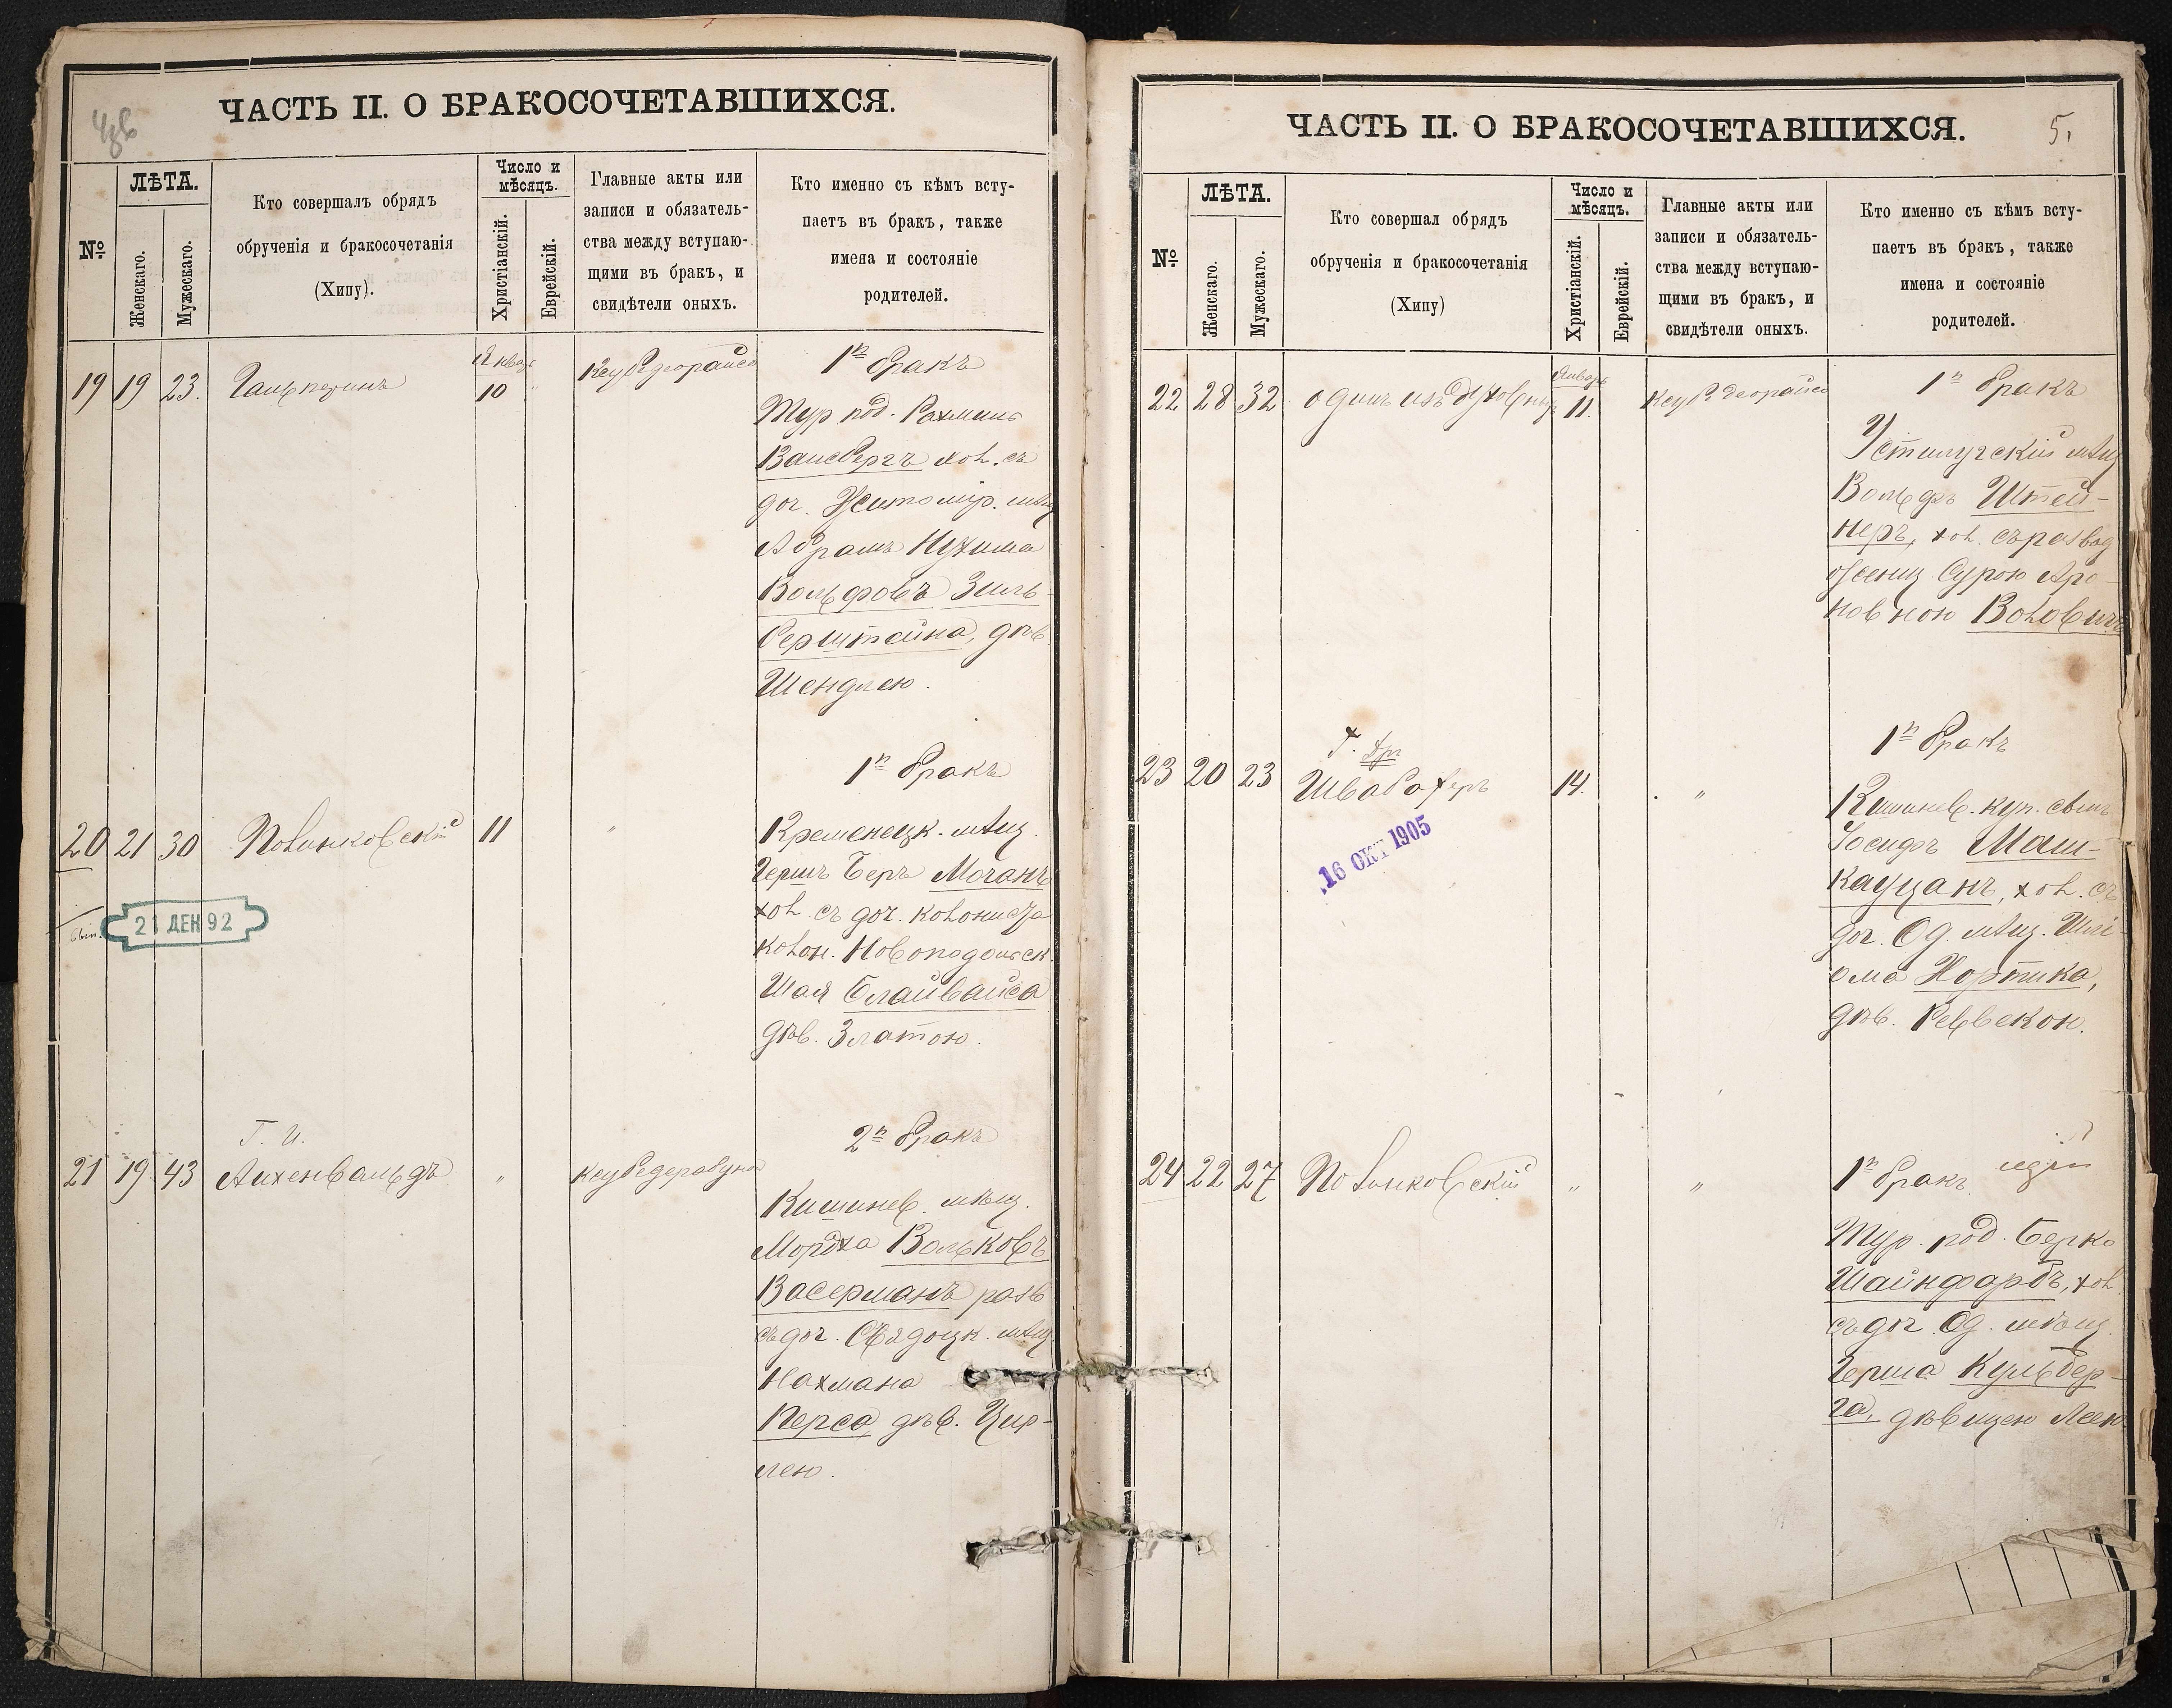 ЧАСТЬ II. О БРАКОСОЧЕТАВШИХСЯ.
№
ЛѢТА.
Женскаго.
Мужескаго.
Кто совершалъ обрядъ
обрученія и бракосочетанія
(Хипу).
Число и
мѣсяцъ.
Христіанскій.
Еврейскій.
Главные акты или
записи и обязатель-
ства между вступаю-
щими въ бракъ, и
свидѣтели оныхъ.
Кто именно съ кѣмъ всту-
паетъ въ бракъ, также
имена и состояніе
родителей.
19 19 23. Гальперинъ
Январ
10
1й бракъ
Тур. под. Рахмиль
Вайсбергъ хол. съ
доч. Житомір. мѣщ
Абрамъ Нухима
Вольфовъ Зиль-
берштейна, дѣв.
Шендлею.
1й бракъ
20 21 30 Полинковскій 11 "
Кременецк. мѣщ.
Гершъ Беръ Мочанъ
хол. съ доч. колониста
колон. Новоподольск.
Шая Блайвайса
дѣв. Златою.
21 ДЕК 92
2й бракъ
Г. И.
21 19 43 Айхенвальдъ "
Кишинев. мѣщ.
Мордха Вольковъ
Васерманъ разв
съ доч. мѣщ.
Нахмана
Перса, дѣв. Цир-
лею.
ЧАСТЬ II. О БРАКОСОЧЕТАВШИХСЯ.
5.
№
ЛѢТА.
Женскаго.
Мужескаго.
Кто совершал обрядъ
обрученія и бракосочетанія
(Хипу)
Число и
мѣсяцъ.
Христіанскій.
Еврейскій.
Главные акты или
записи и обязатель-
ства между вступаю-
щими въ бракъ, и
свидѣтели оныхъ.
Кто именно съ кѣмъ всту-
паетъ въ бракъ, также
имена и состояніе
родителей.
22 28 32 одинъ изъ духовных
Январ
11.
1й бракъ
Устилугскій мѣщ
Вольфъ Штей-
неръ, хол. съ развед
Сурою Аро-
новною Воловичъ
1й бракъ
23 20 23 Швабахеръ 14. "
Кишинев. куп. сынъ
Іосифъ Маш-
кауцанъ, хол. съ
доч. Од. мѣщ. Шлі-
ома Нортика,
дѣв. Ревекою.
16 ОКТ 1905
1й бракъ
24 22 27 Полинковскій " "
Тур. под. Берко
Шайнфарбъ, хол
съ доч Од. мѣщ.
Герша Кульбер-
га, дѣвицею Леею